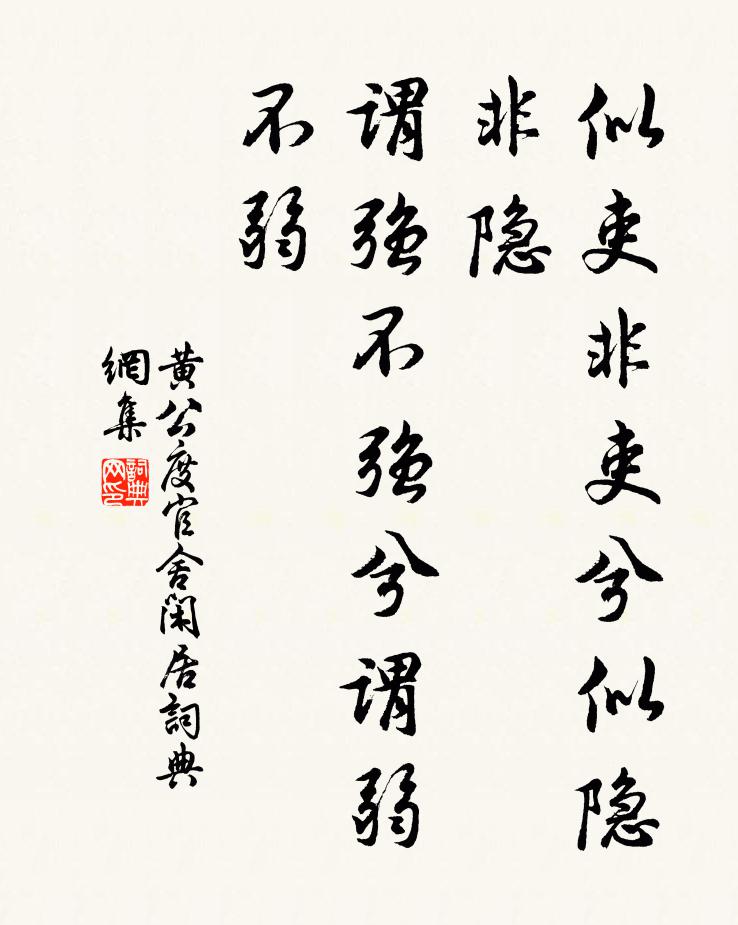 似吏非吏兮似隐
非隐
谓强不强兮谓弱
不弱
黄公度官舍閑居詞典
網集
詞典网印